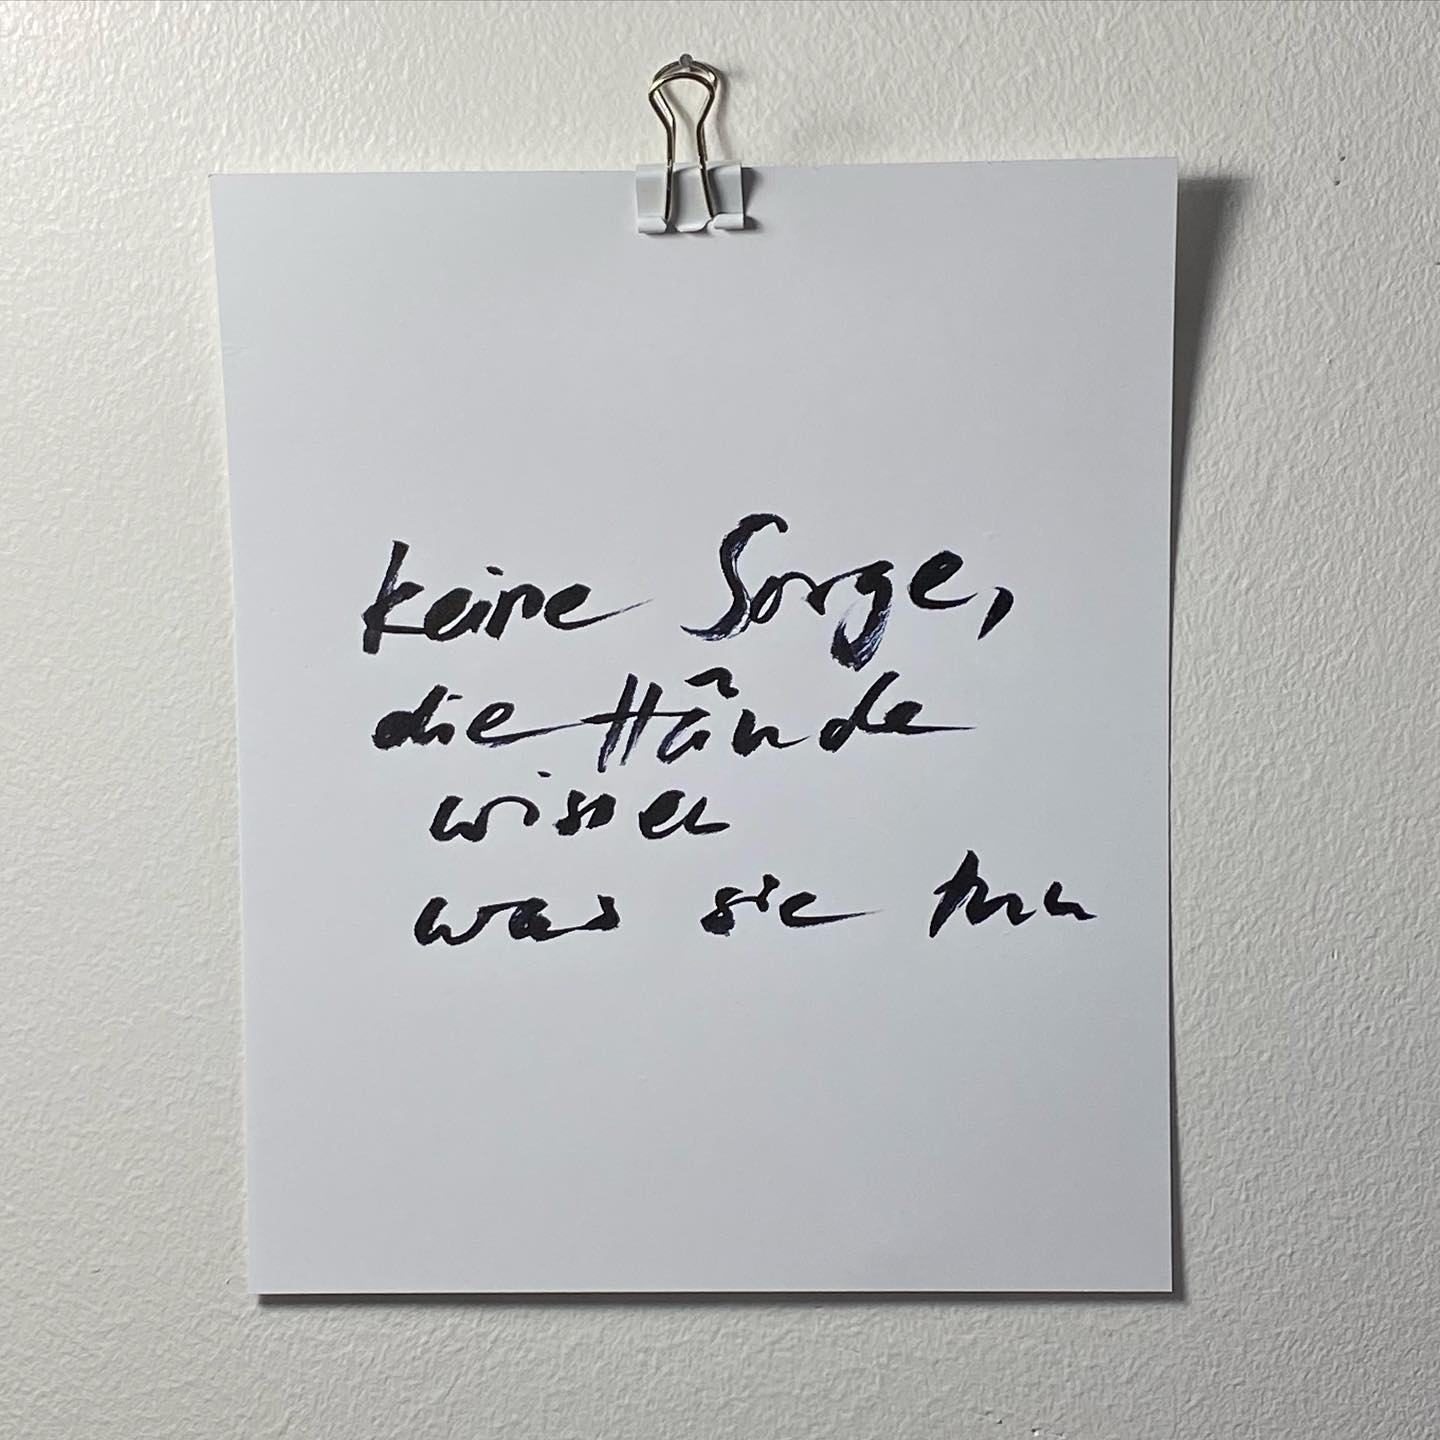 keine Sorge,
die Hände
wissen
was sie tun